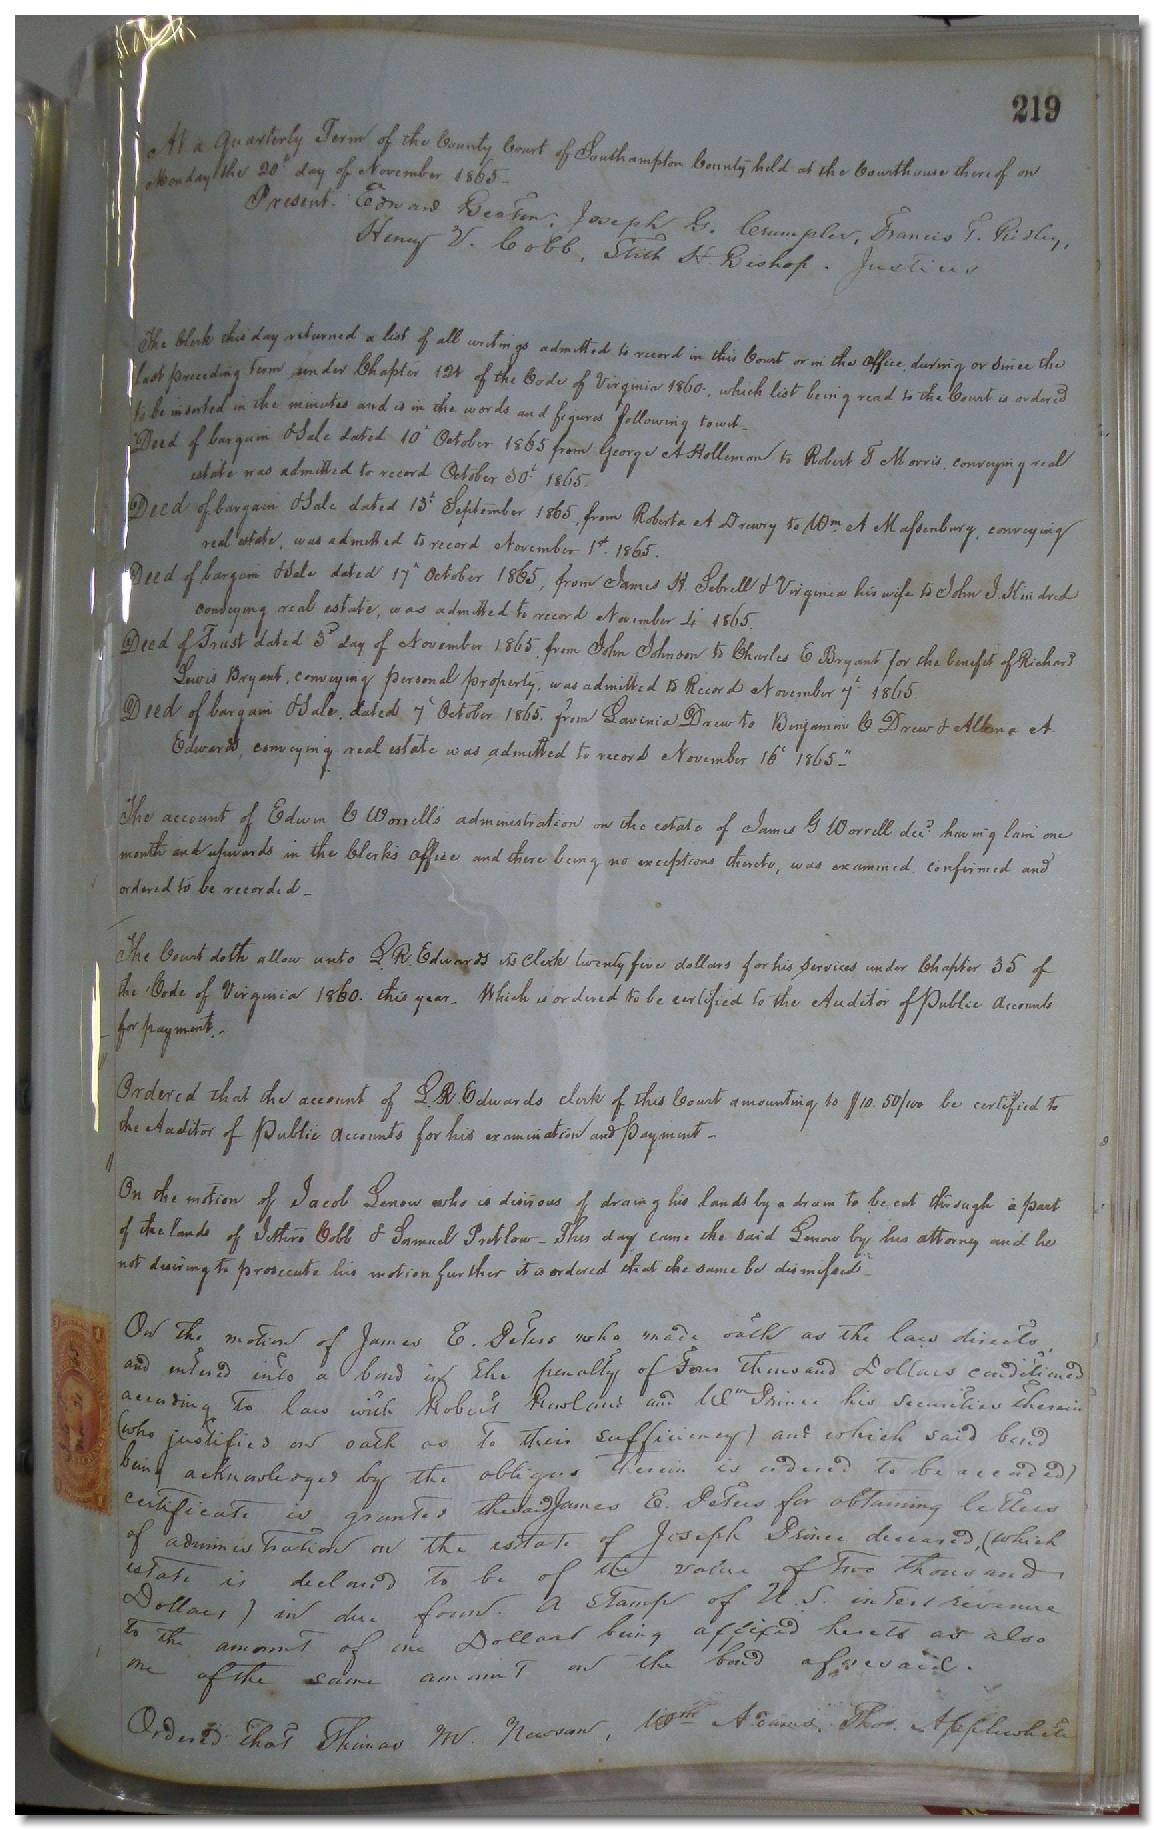 219
At a Quarterly Term of the County Court of Southampton County held at the Courthouse thereof on
Monday the 20th day of November 1865_
Present. Edward Beaton, Joseph G. Crumpler, Francis T. Ridley,
Henry V. Cobb, Stith H. Bishop. Justices
The Clerk this day returned a list of all writings admitted to record in this Court or in the office, during or since the
last preceding term under Chapter 121 of the Code of Virginia 1860, which list being read to the Court is ordered
to be inserted in the minutes and is in the words and figures following towit_
Deed of bargain & Sale dated 10th October 1865 from George A Holleman to Robert T Morris, conveying real
estate was admitted to record October 30th 1865.
Deed of bargain & Sale dated 13th September 1865, from Roberta A Drewry to Wm A Massenburg, conveying
real estate, was admitted to record November 1st 1865.
Deed of bargain & Sale dated 17th October 1865, from James H. Sebrell & Virginia his wife to John J. Kindred
conveying real estate, was admitted to record November 4th 1865.
Deed of Trust dated 3d day of November 1865 from John Johnson to Charles E Bryant for the benefit of Richard
Lewis Bryant, conveying personal property, was admitted to Record November 7th 1865
Deed of bargain & Sale, dated 7th October 1865, from Lavinia Drew to Benjamin C Drew & A
Edwards, conveying real estate was admitted to record November 16th 1865_"
The account of Edwin C Worrell's administration on the estate of James G Worrell decd having lain one
month and upwards in the Clerk's office and there being no exceptions thereto, was examined, confirmed and
ordered to be recorded_
The Court doth allow unto L.R. Edwards its clerk twenty five dollars for his services under Chapter 35 of
the Code of Virginia 1860. this year. Which is ordered to be certified to the Auditor of Public Accounts
for payment.
Ordered that the account of L.R. Edwards clerk of this Court amounting to $10.50/100 be certified to
the Auditor of Public Accounts for his examination and payment_
On the motion of Jacob Lenow who is desirous of draing his lands by a drain to be cut through a part
of the lands of Jethro Cobb & Samuel Pretlow_ This day came the said Lenow by his attorney and he
not desiring to prosecute his motion further it is ordered that the same be dismissed_
On the motion of James E. Peters who made oath as the law directs,
and entered into a bond in the penalty of Four thousand Dollars conditioned
according to law with Robert Rowland and Wm Prince his securities therein
(who justified on oath as to their sufficiency) and which said bond
being acknowledged by the obligors therein is ordered to be recorded)
certificate is granted the said James E. Peters for obtaining letters
of administration on the estate of Joseph Prince deceased, (which
estate is declared to be of the value of two thousand
Dollars) in due form. A Stamp of U.S. inter revenue
to the amount of one Dollar being affixed hereto as also
one of the same amount on the bond aforesaid.
Ordered that Thomas W. Newsom, Wm Adams, Thos. Applewhite